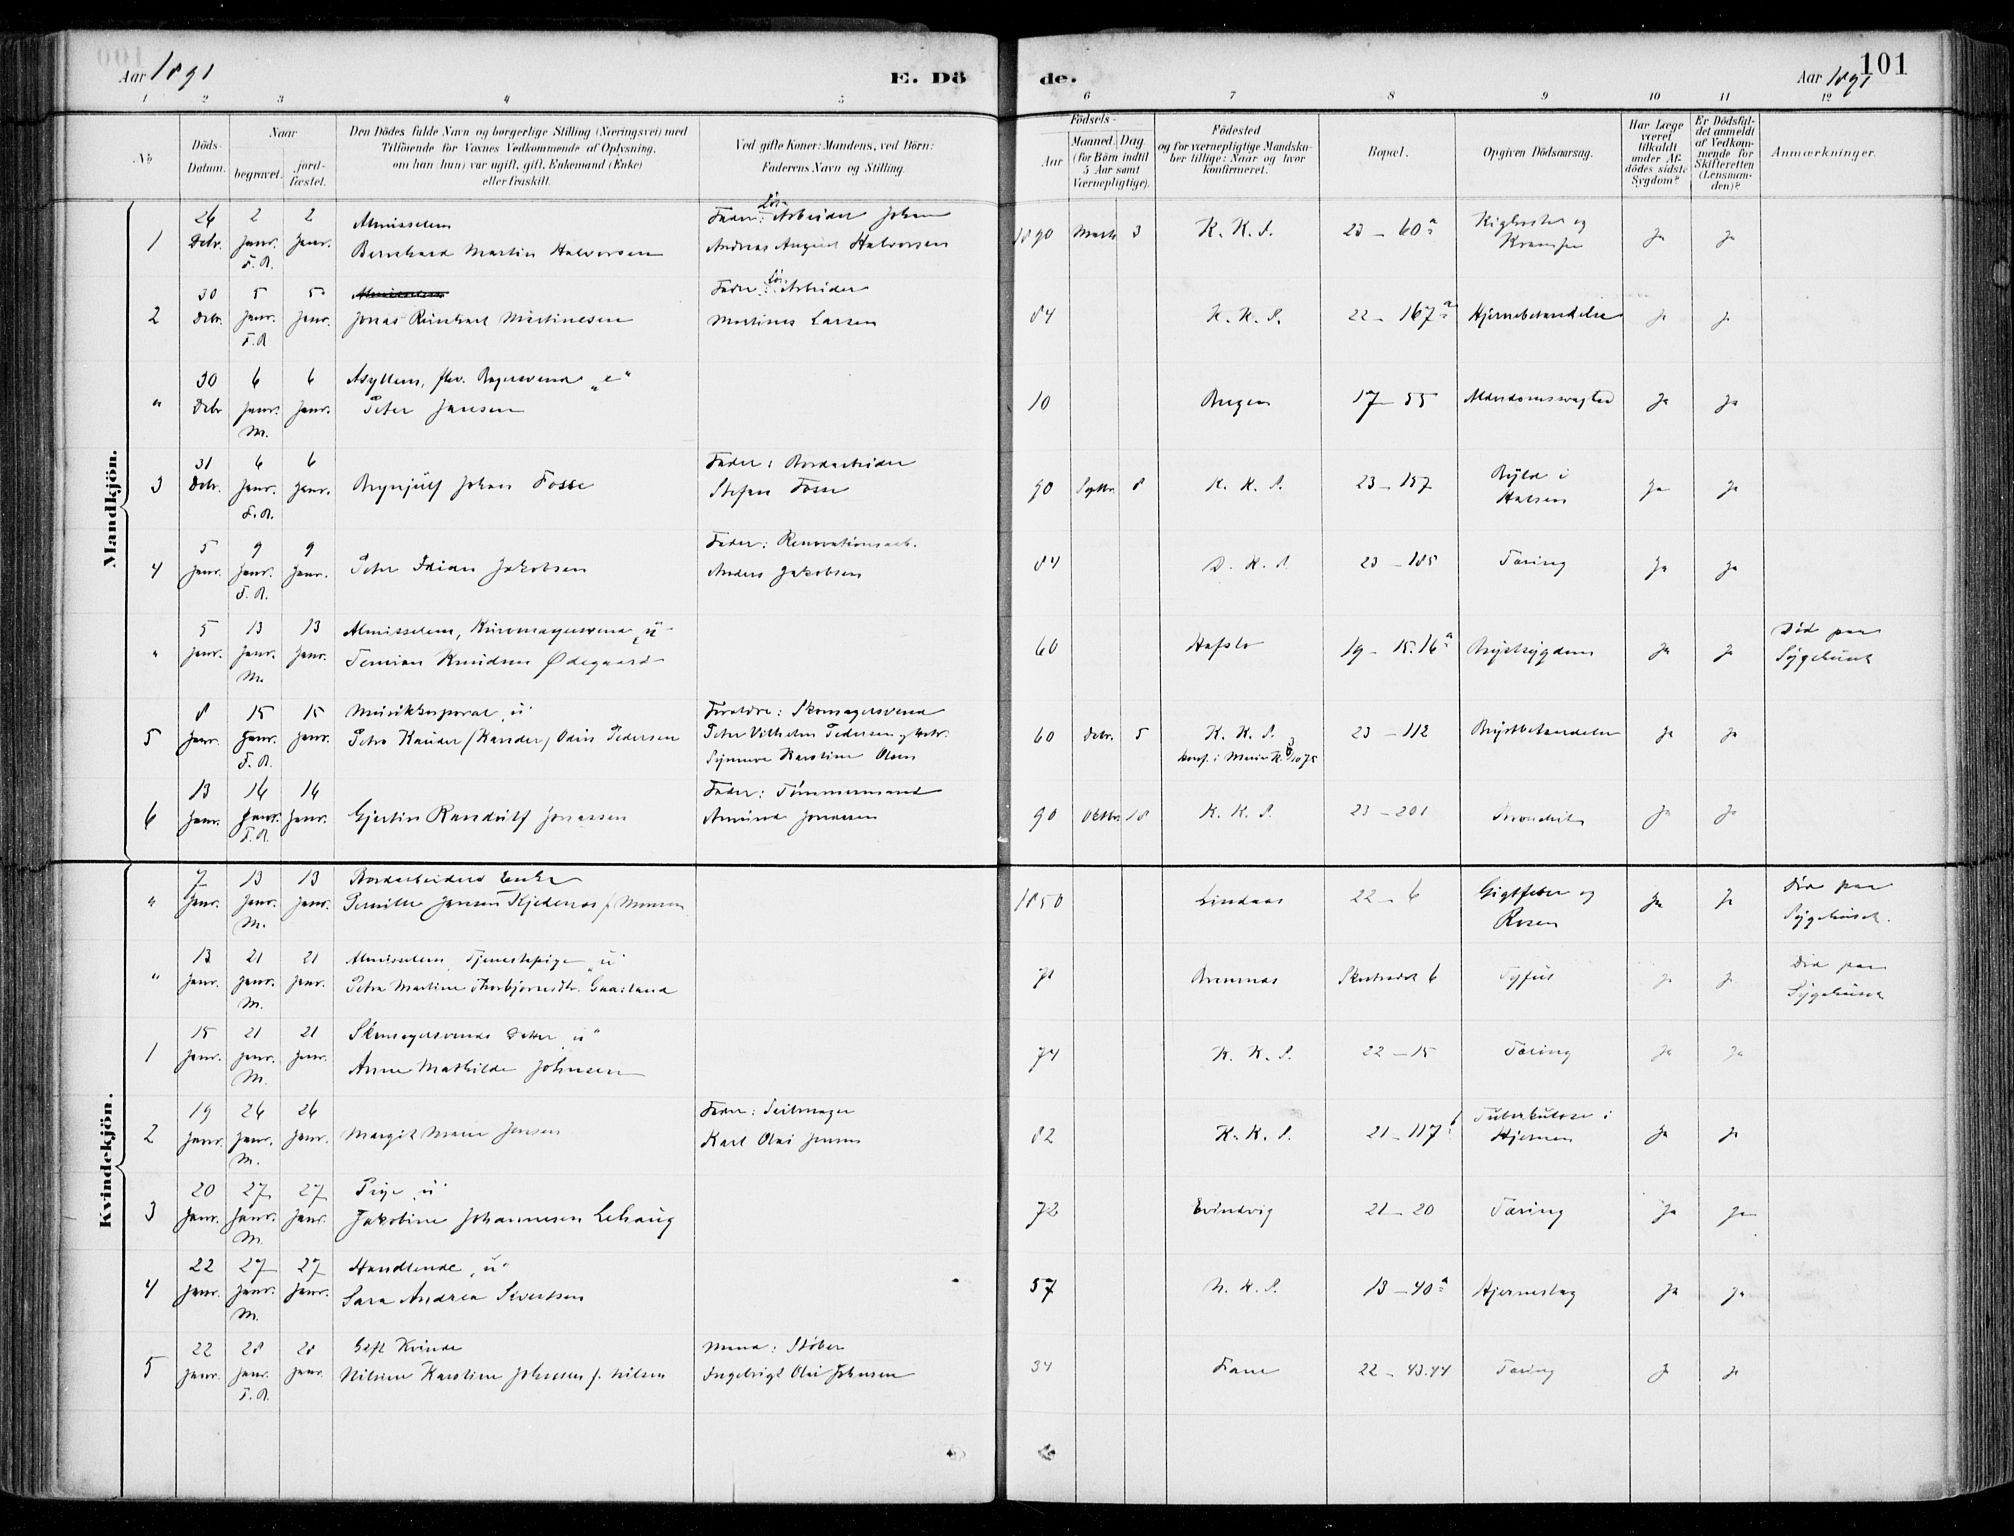 101
Aar 1891
E. Dö
de.
Aar 1891
1 2 3 4 5 6 7 8 9 10 11 12
No
Döds-Datum.
Naar
begravet.
jord-fæstet.
Den Dödes fulde Navn og borgerlige Stilling (Næringsvei) med
Tilföiende for Voxnes Vedkommende af Oplysning,
om han (hun) var ugift, gift, Enkemand (Enke)
eller fraskilt.
Ved gifte Koner: Mandens, ved Börn:
Faderens Navn og Stilling.
Födsels-
Aar
Maaned. Dag.
(for Börn indtil
5 Aar samt
Værnepligtige).
Födested
og for værnepligtige Mandska-
ber tillige: Naar og hvor
konfirmeret.
Bopæl.
Opgiven Dödsaarsag.
Har Læge
været
tilkaldt
under Af-
dödes sidste
Sygdom?
Er Dödsfal-
det anmeldt
af Vedkom-
mende for
Skifteretten
(Lensman-
den)?
Anmærkninger.
Mandkjön.
26 2 2 Almisselem Fader: Løs Arbeider Johan
1 Debr. Janr. Janr. Bernhard Martin Halvorsen Andreas August Halvorsen 1890 Marts 3 K. K. S. 23 - 60a Kighoste og Krampe Ja Ja
F. A.
30 5 5 Almisselem Fader: Løs Arbeider
2 Debr. Janr. Janr. Jonas Reinhart Martinesen Martines Larsen 84 K. K. S. 22 - 167a Hjernebetændelse Ja Ja
F. A.
30 6 6 Asyllem, fhv. Bagersvend „e“
" Debr Janr. Janr. Peter Jansen 10 Bergen 17 - 55 Alderdomssvaghed Ja Ja
M.
31 6 6 Fader: Bordarbeider
3 Debr. Janr. Janr. Brynjulf Johan Fosse Stefan Fosse 90 Septbr. 8 K. K. S. 23 - 157 Byld i Halsen Ja Ja
F. A.
5 9 9 Fader: Renovationsarb.
4 Janr. Janr. Janr. Peter Jakobsen Anders Jakobsen 84 D. K. S. 23 - 185 Tæring Ja Ja
F. A.
5 13 13 Almisselem, „u“
" Janr. Janr. Janr. Knudsen Ødegaard 60 Hafslo 19 - 15.16a Brystsygdom Ja Ja Død paa Sygehuset
M.
8 15 15 Musikkorporal „u“ Forældre: Skomagersvend
5 Janr. Janr. Janr. Petro Kander (Kander) Odin Pedersen Peter Vilhelm Pedersen og Hstr. 60 Debr. 5 K. K. S. 23 - 112 Brystbetændelse Ja Ja
F. A. Synneve Karoline Olsen konf. i Marie K. 1875
13 16 16 Fader: Tømmermand
6 Janr. Janr. Janr. Gjertin Randulf Jonassen Amund Jonassen 90 Oktbr. 18 K. K. S. 23 - 201 Bronchit Ja Ja
F. A.
Kvindekjön.
7 13 13 Bordarbeiders Enke
" Janr. Janr. Janr. Pernille Jansen Kjedenes f. Monsen 1850 Lindaas 22 - 6 Gigtfeber og Rosen Ja Ja Død paa Sygehuset.
M.
13 21 21 Almisselem, Tjenestepige „u“
" Janr. Janr. Janr. Petra Martine Thorbjørnsdtr. Gaasland 71 Bremnæs Skostrædet 6 Tyfus Ja Ja Død paa Sygehuset
M.
15 21 21 Skomagersvends Datter „u“
1 Janr. Janr. Janr. Anne Mathilde Johnsen 74 K. K. S. 22 - 15 Tæring Ja Ja
M.
19 26 26 Fader: Seilmager
2 Janr. Janr. Janr. Margit Marie Jensen Karl Olai Jensen 82 K. K. S. 21 - 117b Tuberkulose i Hjernen Ja Ja
M.
20 27 27 Pige „u“
3 Janr. Janr. Janr. Jakobine Johannesen Lehaug 72 Evindvig 21 - 20 Tæring Ja Ja
M.
22 27 27 Handlende „u“
4 Janr. Janr. Janr. Sara Andrea Sivertsen 57 N. K. S. 13 - 40a Hjerneslag Ja Ja
M.
22 28 28 Gift Kvinde Mand: Støber
5 Janr. Janr. Janr. Nilsine Karoline Johnsen f. Nilsen Ingebrigt Olai Johnsen 34 Fane 22 - 43.44 Tæring Ja Ja
F. A.